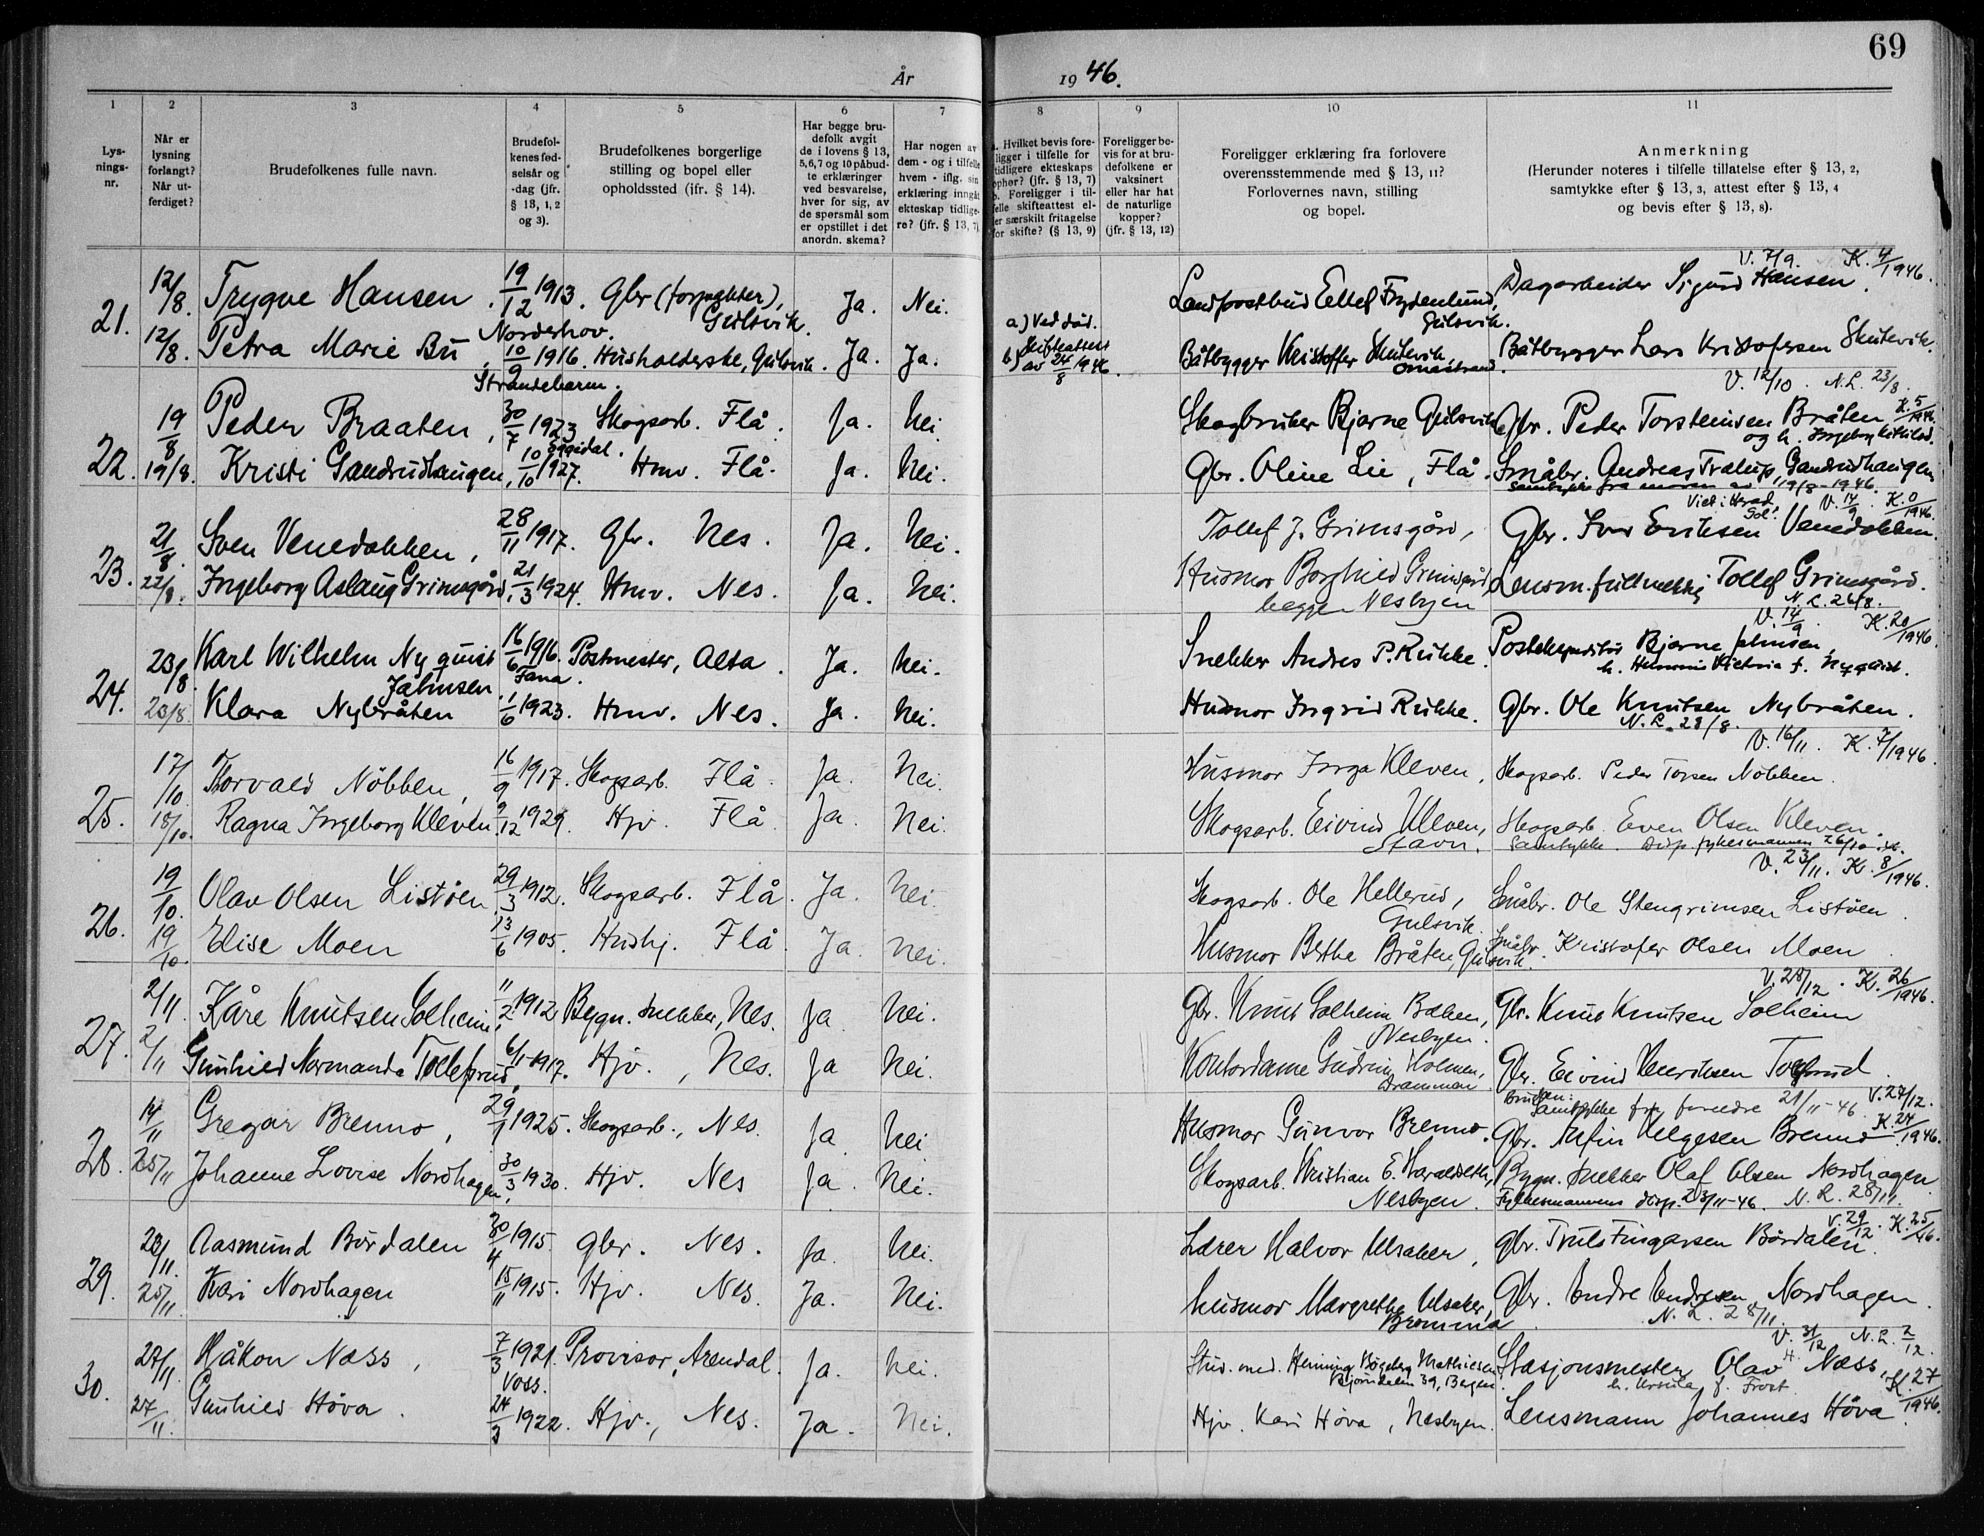 69
År 1946.
1 2 3 4 5 6 7 8 9 10 11
Lys-
nings-
nr.
Når er
lysning
forlangt?
Når ut-
ferdiget?
Brudefolkenes fulle navn.
Brudefol-
kenes fød-
selsår og
-dag (jfr.
§ 13, 1, 2
og 3).
Brudefolkenes borgerlige
stilling og bopel eller
opholdssted (ifr. § 14).
Har begge bru-
defolk avgit
de i lovens § 13,
5,6,7 og 10 påbud-
te erklæringer
ved besvarelse,
hver for sig, av
de spørsmål som
er opstillet i det
anordn. skema?
Har nogen av
dem - og i tilfelle
hvem - iflg. sin
erklæring inngått
ekteskap tidlige-
re? (jfr. § 13, 7)
a. Hvilket bevis fore-
ligger i tilfelle for
tidligere ekteskaps
ophør? (jfr. § 13, 7)
b. Foreligger i til-
felle skifteattest el-
ler særskilt fritagelse
for skifte? (§ 13, 9)
Foreligger be-
vis for at bru-
defolkene er
vaksinert
eller har hat
de naturlige
kopper?
(jfr. § 13, 12)
Foreligger erklæring fra forlovere
overensstemmende med § 13, 11?
Forlovernes navn, stilling
og bopel.
Anmerkning
(Herunder noteres i tilfelle tillatelse efter § 13, 2,
samtykke efter § 13, 3, attest efter § 13, 4
og bevis efter § 13, 8).
V. 7/9. K. 4/1946.
21. 12/8. Trygve Hansen 19/12 1913. Gbr (forpakter), Ja. Nei. Landpostbud Ellef Frydenlund, Dagarbeider Sigurd Hansen.
Norderhov. Gulsvik. Gulsvik.
12/8. Petra Marie Bu, 10/9 1916. Husholderske, Gulsvik. Ja. Ja. a) Ved død. b) Skifteattest av 24/8 1946. Båtbygger Kristoffer Skutevik, Omastrand. Båtbygger Lars Kristofersen Skutevik.
Strandebarm. V. 12/10. N.L. 23/8.
22. 19/8 Peder Braaten, 30/7 1923 Skogsarb. Flå. Ja. Nei. Skogbruker Bjarne Gulsvik Gbr. Peder Torsteinsen Bråten K. 5/1946.
Eggedal. og h. Ingeborg Kittilsd.
19/8. Kristi Gandrudhaugen, 10/10 1927. Hmv. Flå. Ja. Nei. Gbr. Oline Lie, Flå. Småbr. Andreas Trulsen Gandrudhaugen
samtykke fra moren av 19/8-1946.
Viet i Herad Gol! V. 14/9. K. 0/1946.
23. 21/8. Sven Venedokken, 28/11 1917. Gbr. Nes. Ja. Nei. Tollef J. Grimsgård, Gbr. Ivar Eriksen Venedokken.
22/8. Ingeborg Aslaug Grimsgård, 21/3 1924. Hmv. Nes. Ja. Nei. Husmor Borghild Grimsgård Lensm.fullmektig Tollef Grimsgård.
begge Nesbyen N.L. 26/8.
V. 14/9 K. 20/1946.
24. 23/8 Karl Wilhelm Nyquist 16/6 1916. Postmester, Alta. Ja. Nei. Snekker Andres P. Rukke. Postekspeditør Bjarne Johnsen,
Johnsen. Fana. h. Hemmi Victoria f. Nyqvist.
23/8 Klara Nybråten 1/6 1923. Hmv. Nes. Ja. Nei. Husmor Ingrid Rukke. Gbr. Ole Knutsen Nybråten.
N.L. 28/8. V. 16/11. K. 7/1946.
25. 17/10 Torvald Nöbben, 16/9 1917. Skogsarb. Flå. Ja. Nei. Husmor Inga Kleven, Skogsarb. Peder Torsen Nöbben.
18/10. Ragna Ingeborg Kleven 9/12 1929. Hjv. Flå. Ja. Nei. Skogsarb. Eivind Kleven, Skogsarb. Even Olsen Kleven.
Stavn. Samtykke. Disp fylkesmannen 26/10-46.
V. 23/11. K. 8/1946.
26. 19/10. Olav Olsen Listöen 29/3 1912. Skogsarb. Flå. Ja. Nei. Skogsarb. Ole Hellerud, Småbr. Ole Stengrimsen Listöen.
Gulsvik.
19/10 Elise Moen 13/6 1905. Hushj. Flå. Ja. Nei. Husmor Berthe Bråten, Gulsvik. Småbr. Kristofer Olsen Moen.
V. 28/12. K. 26/1946.
27. 2/11 Kåre Knutsen Solheim, 11/2 1912 Bygn. snekker, Nes. Ja. Nei. Gbr. Knut Solheim Bakken, Gbr. Knut Knutsen Solheim
Nesbyen.
2/11 Gunhild Normanda Tollefsrud, 6/1 1917. Hjv., Nes. Ja Nei. Kontordame Gudrun Holmen, Gbr. Eivind Henriksen Tollefsrud.
Drammen Bruden: Samtykke fra foreldre 21/11-46. V. 27/12.
28. 14/11 Gregar Brenno, 29/1 1925. Skogsarb., Nes. Ja Nei. Husmor Gunvor Brenno. Gbr. Arfin Helgesen Brenno K. 24/1946.
25/11 Johanne Lovise Nordhagen, 30/3 1930. Hjv. Nes Ja. Nei. Skogsarb. Kristian E. Haraldseth, Bygn. snekker Olaf Olsen Nordhagen
Nesbyen. Fylkesmannens disp. 23/11-46. N.L. 28/11.
V. 29/12. K. 25/46.
29. 23/11. Aasmund Bördalen 30/4 1915. gbr. Nes. Ja. Nei. Lærer Halvor Ulsaker, Gbr. Truls Fingarsen Bördalen.
25/11. Kari Nordhagen 15/11 1915. Hjv. Nes. Ja. Nei. Husmor Margrethe Ulsaker, Gbr. Endre Endresen Nordhagen.
Bromma N.L. 28/11.
V. 31/12 N.L. 2/12.
30. 27/11 Håkon Næss, 7/3 1921. Provisor, Arendal. Ja. Nei. Stud. med. Henning Bögeberg Mathiesen Stasjonsmester Olav H. Næss,
Voss. Bjørndalen 39, Bergen. h. Ursula f. Frost. K. 27/1946.
27/11. Gunhild Höva. 24/3 1922. Hjv., Nes. Ja. Nei. Hjv. Kari Höva, Nesbyen. Lensmann Johannes Höva.